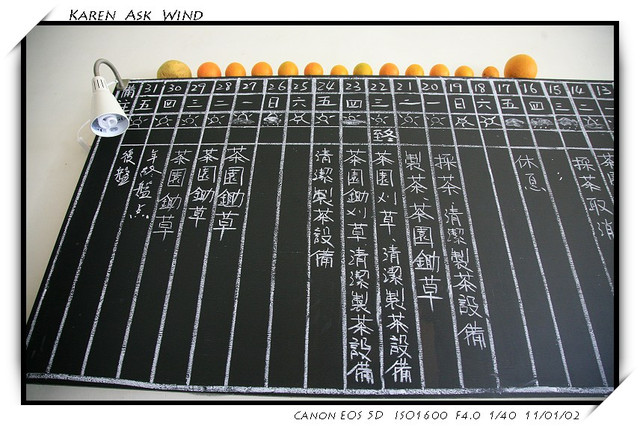 KAREN ASK WIND
備 31 30 29 28 27 26 25 24 23 22 21 20 19 18 17 16 15 14 13
五 四 三 二 一 日 六 五 四 三 二 一 日 六 五 四 三 二
採茶取消
休息
清潔製茶設備
採茶
製茶茶園鋤草
茶園刈草、清潔製茶設備
茶園鋤刈草清潔製茶設備
清潔製茶設備
茶園鋤草
茶園鋤草
茶園鋤草
年終盤点
後盤
CANON EOS 5D ISO1600 F4.0 1/40 11/01/02